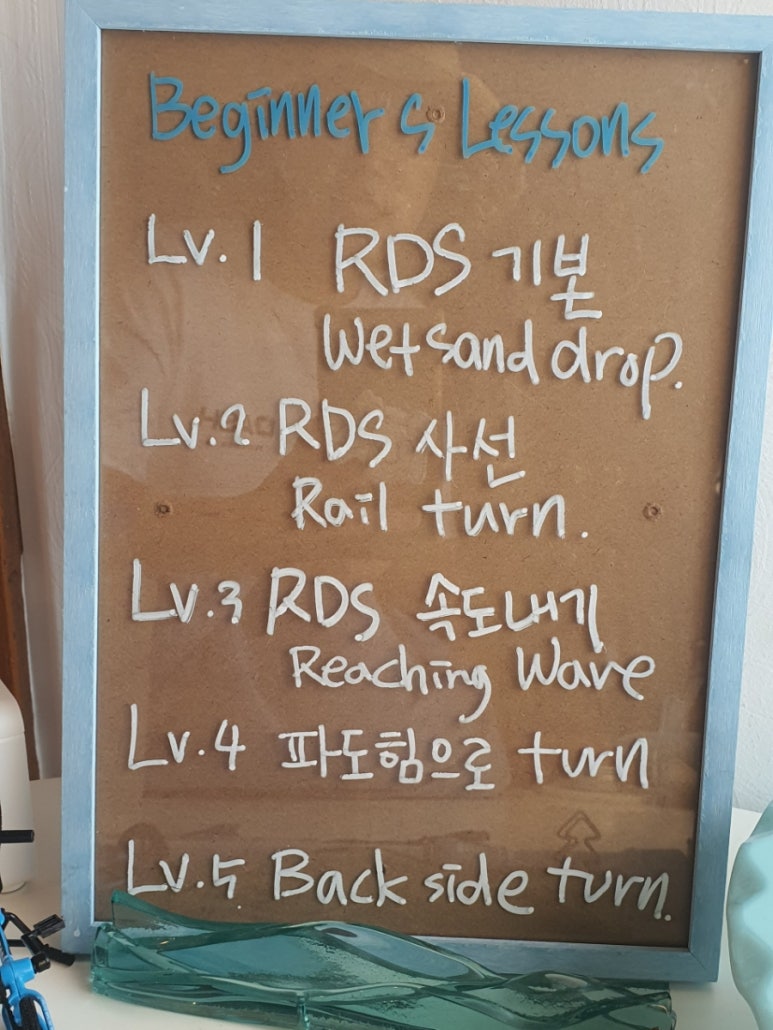 Beginner s Lessons
Lv. 1 RDS 기본
Wet sand drop.
Lv.2 RDS 사선
Rail turn.
Lv.3 RDS 속도내기
Reaching Wave
Lv.4 파도힘으로 turn
Lv.5 Back side turn.